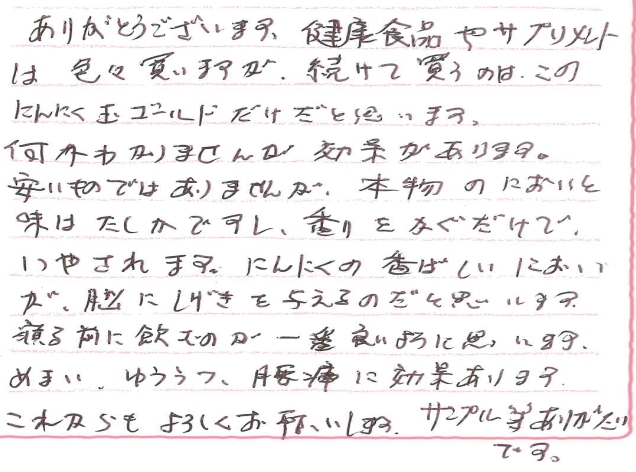 ありがとうございます。健康食品やサプリメント
は色々買いますが、続けて買うのは、この
にんにく玉ゴールドだけだと思います。
何かわかりませんが効果があります。
安いものではありませんが、本物のにおいと
味はたしかですし、香りをかぐだけで、
いやされます。にんにくの香ばしいにおい
が、脳にしげきを与えるのだと思います。
寝る前に飲むのが一番良いように思います。
めまい、ゆううつ、腰痛に効果あります。
これからもよろしくお願いします。サンプルありがたい
です。